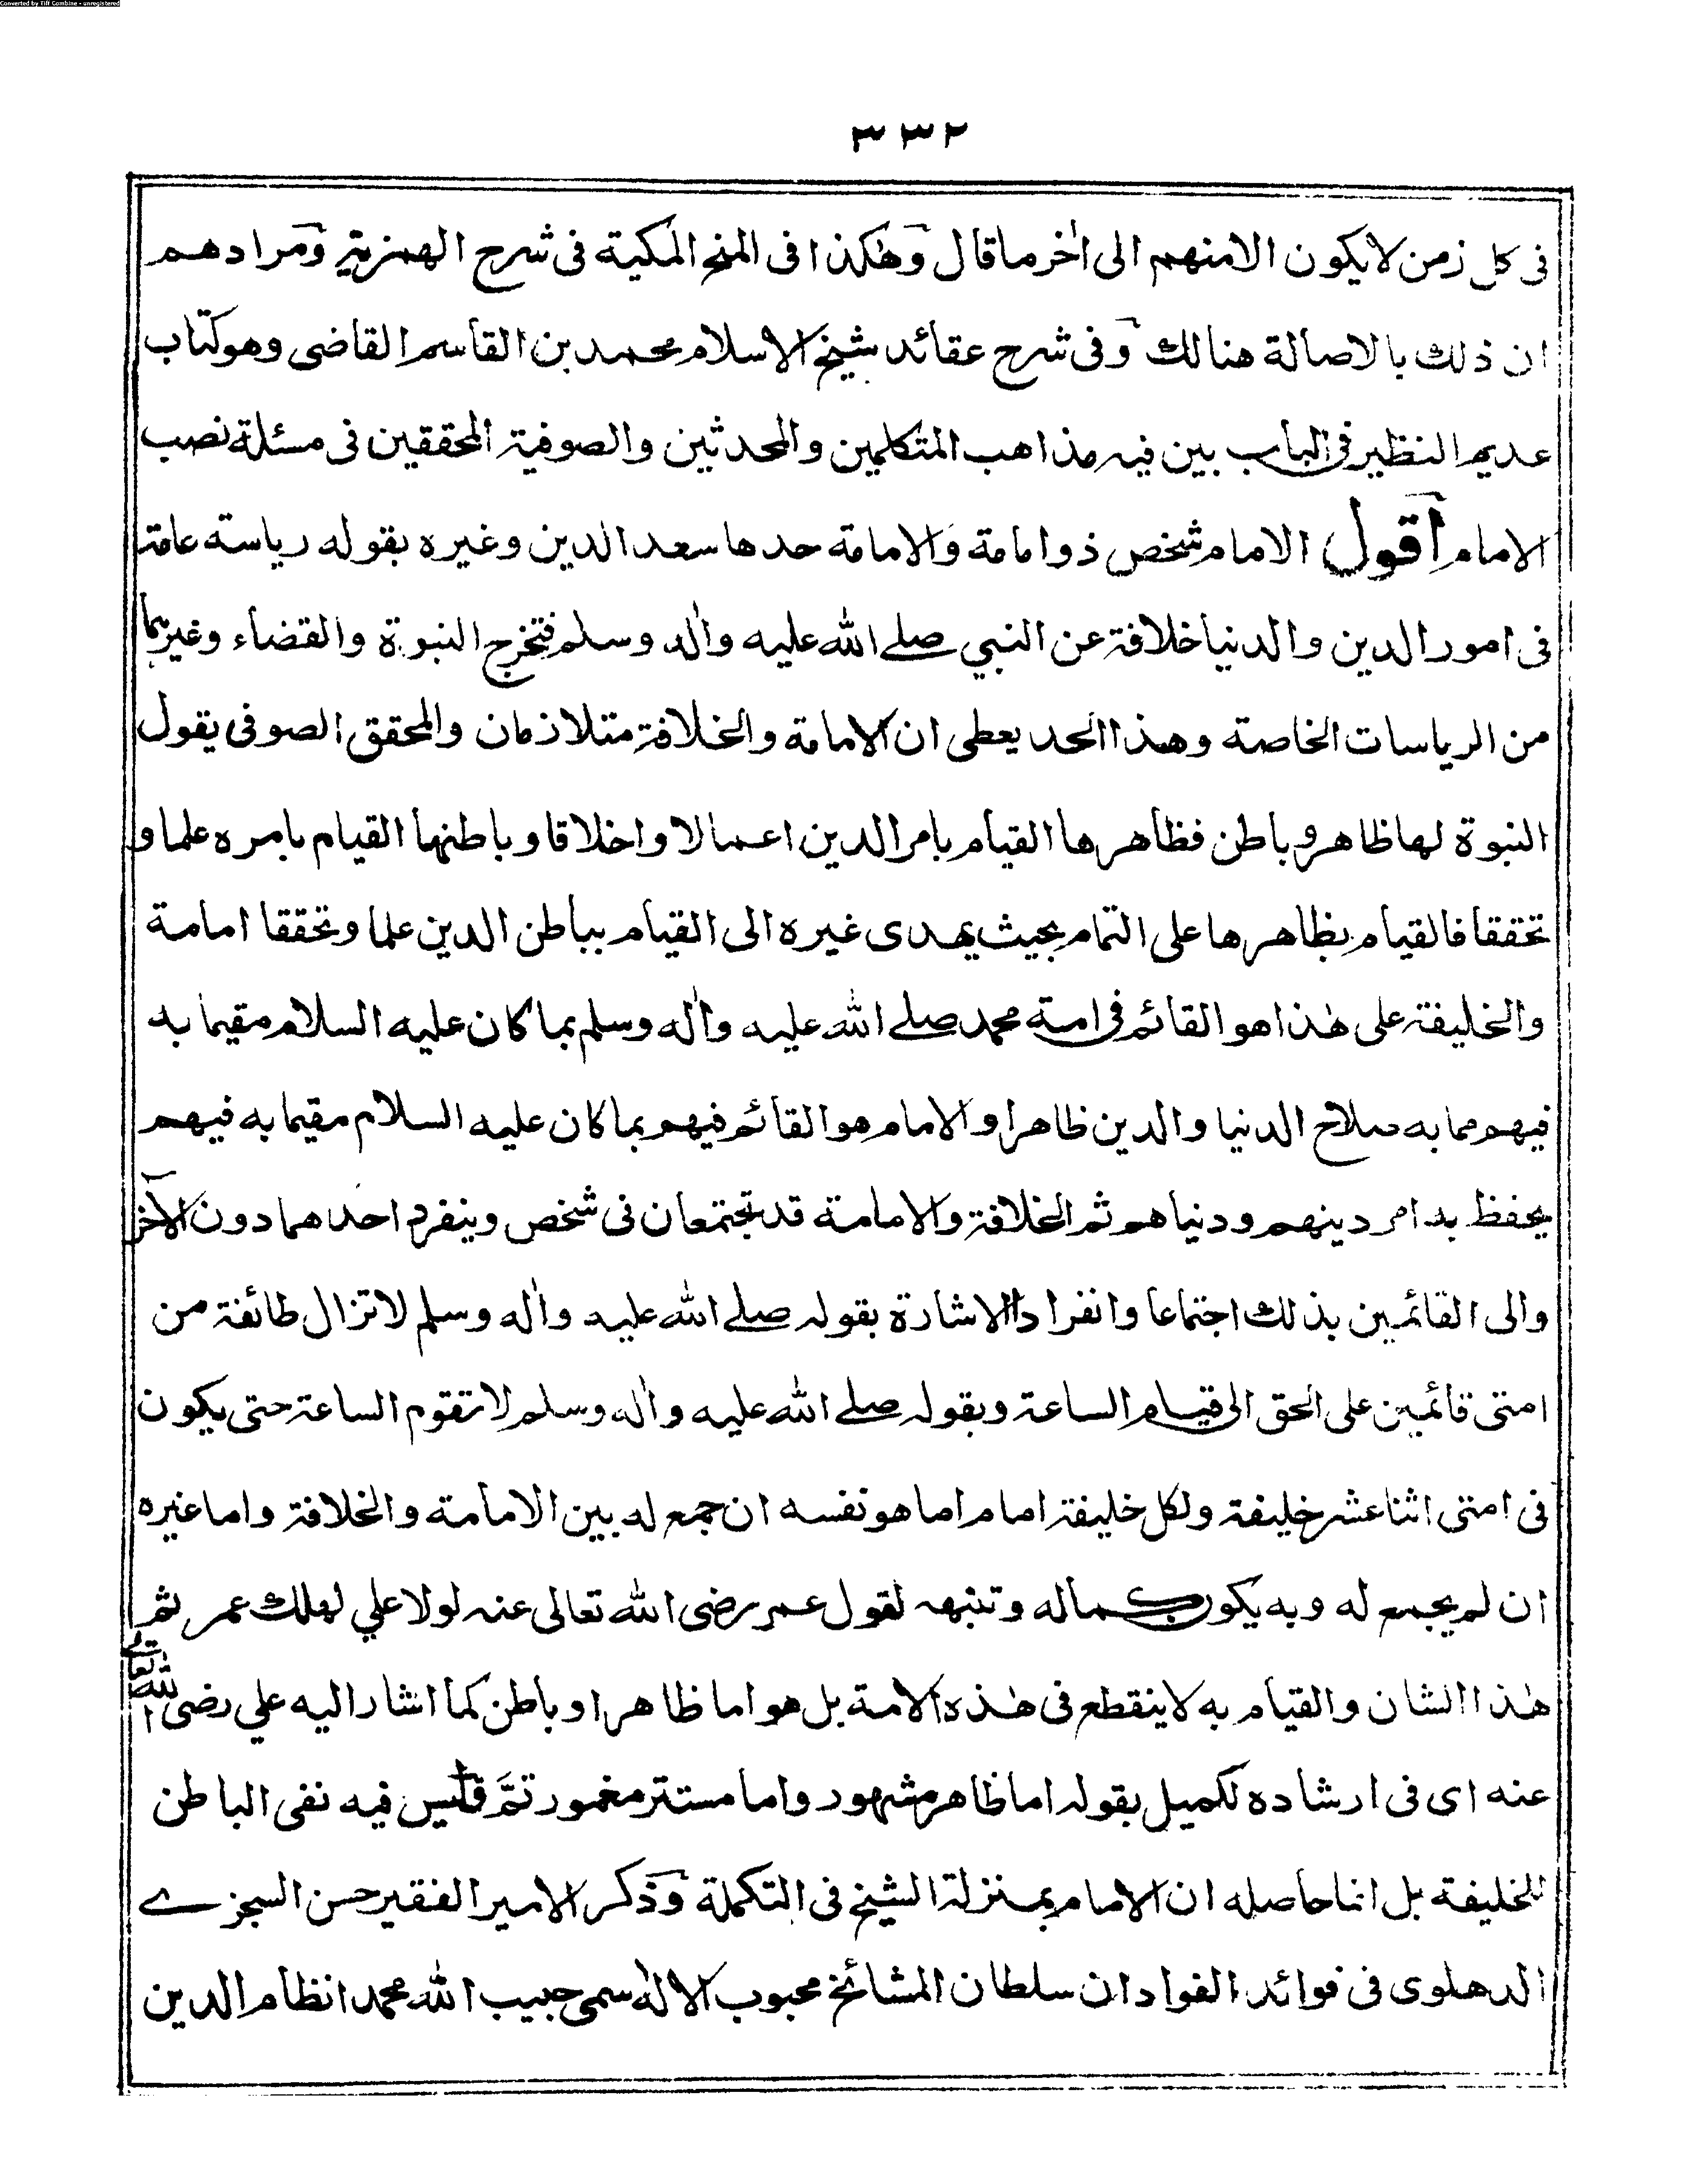 Converted by Tiff Combine - unregistered
٣٣٢
فى كل زمن لايكون الامنهم الى اٰخر ماقال وهٰكذا فى المنح المكية فى شرح الهمزية ومرادهم
ان ذلك بالاصالة هنالك وفى شرح عقائد شيخ الاسلام محمد بن القاسم القاضى وهوكتاب
عديم النظير فى الباب بين فيه مذاهب المتكلمين والمحدثين والصوفية المحققين فى مسئلة نصب
الامام اقول الامام شخص ذو امامة والامامة حدها سعد الدين وغيره بقوله رياسة عامة
فى امور الدين والدنيا خلافة عن النبي صلے الله عليه واٰله وسلم فتخرج النبوة والقضاء وغيرهما
من الرياسات الخاصة وهذا الحد يعطى ان الامامة والخلافة متلازمان والمحقق الصوفى يقول
النبوة لها ظاهر وباطن فظاهرها القيام بامر الدين اعمالا واخلاقا وباطنها القيام بامره علما و
تحققا فالقيام بظاهرها على التمام بحيث يهدى غيره الى القيام بباطن الدين علما وتحققا امامة
والخليفة على هٰذا هو القائم فى امة محمد صلے الله عليه واٰله وسلم بما كان عليه السلام مقيما به
فيهم مما به صلاح الدنيا والدين ظاهرا والامام هو القائم فيهم بما كان عليه السلام مقيما به فيهم
يحفظ به امر دينهم ودنياهم ثم الخلافة والامامة قد تجتمعان فى شخص وينفرد احدهما دون الآخر
والى القائمين بذلك اجتماعا وانفرادا الاشارة بقوله صلے الله عليه واٰله وسلم لاتزال طائفة من
امتى قائمين على الحق الى قيام الساعة وبقوله صلے الله عليه واٰله وسلم لا تقوم الساعة حتى يكون
فى امتى اثنا عشر خليفة ولكل خليفة امام اما هو نفسه ان جمع له بين الامامة والخلافة واما غيره
ان لم يجمع له وبه يكون كماله وتنبهه لقول عمر رضى الله تعالى عنه لولا علي لهلك عمر ثم
هٰذا الشان والقيام به لاينقطع فى هٰذه الامة بل هو اما ظاهرا وباطن كما اشار اليه علي رضى الله تعالى
عنه اى فى ارشاده لكميل بقوله اما ظاهر مشهور واما مستتر مغمور تمَّ فليس فيه نفى الباطن
للخليفة بل انما حاصله ان الامام بمنزلة الشيخ فى التكملة وذكر الامير الفقير حسن السجزے
الدهلوى فى فوائد الفواد ان سلطان المشائخ محبوب الالٰه سمى حبيب الله محمد انظام الدين